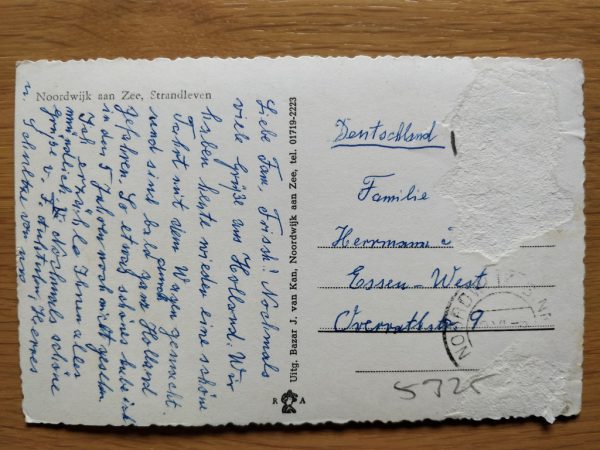 Noordwijk aan Zee, Strandleven
Liebe Fam. Frisch! Nochmals
viele Grüße aus Holland. Wir
haben heute wieder eine schöne
Fahrt mit dem Wagen gemacht.
und sind bald ganz Holland
gefahren. So etwas schönes hab ich
in den 5 Jahren noch nicht gesehen
Ich erzähle Ihnen alles
mündlich. Nochmals schöne
Grüße v.
u. von
Uitg. Bazar J. van Kan, Noordwijk aan Zee, tel. 01719-2223
R A
Deutschland
Familie
Herrmann
Essen-West
Overrathstr. 9
5325